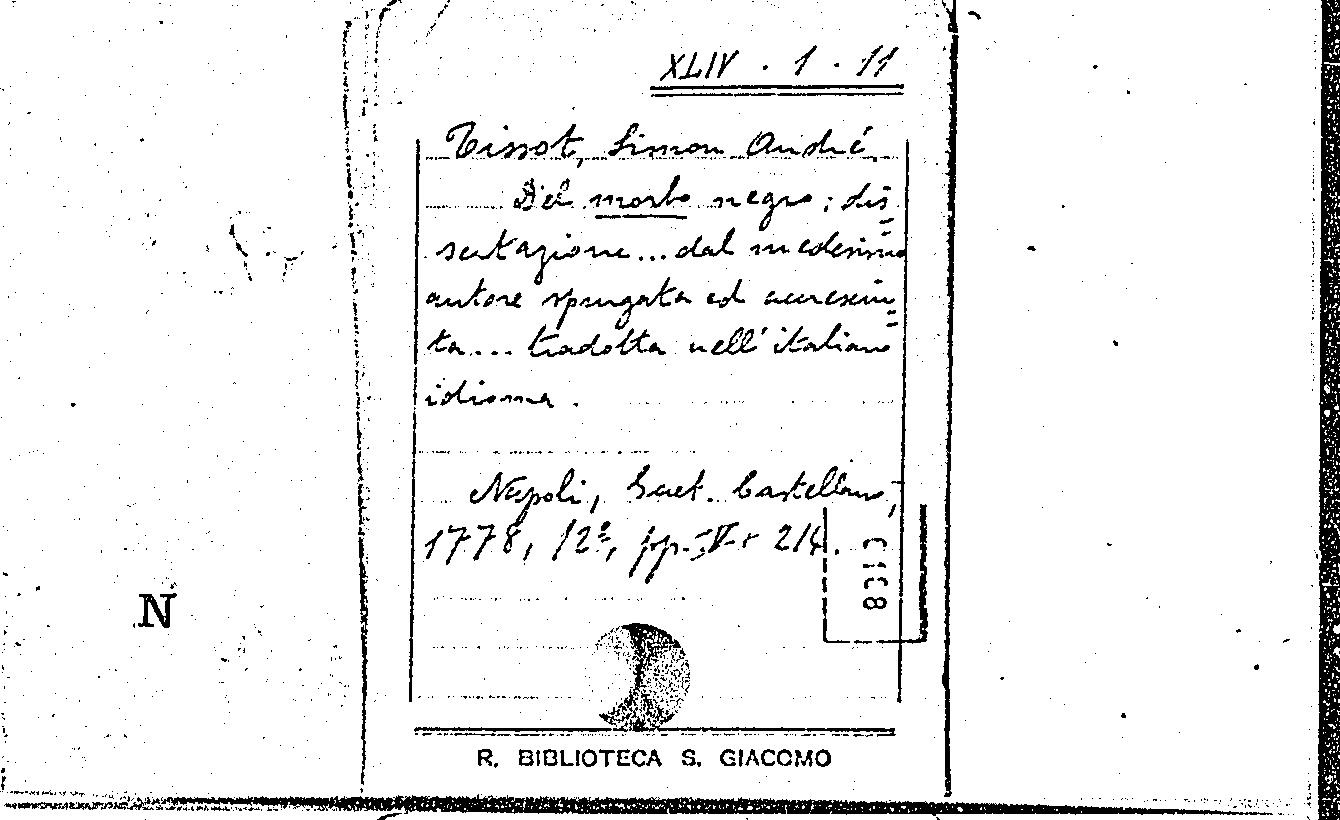 XLIV . 1 . 11
Tissot, Simon André.
Del morbo negro; dis=
sertazione... dal medesimo
autore spurgata ed accresciu=
ta... tradotta nell'italiano
idioma.
Napoli, Gaet. Castellano,
1778, 12º, pp. IV + 214.
0108
N
R. BIBLIOTECA S. GIACOMO